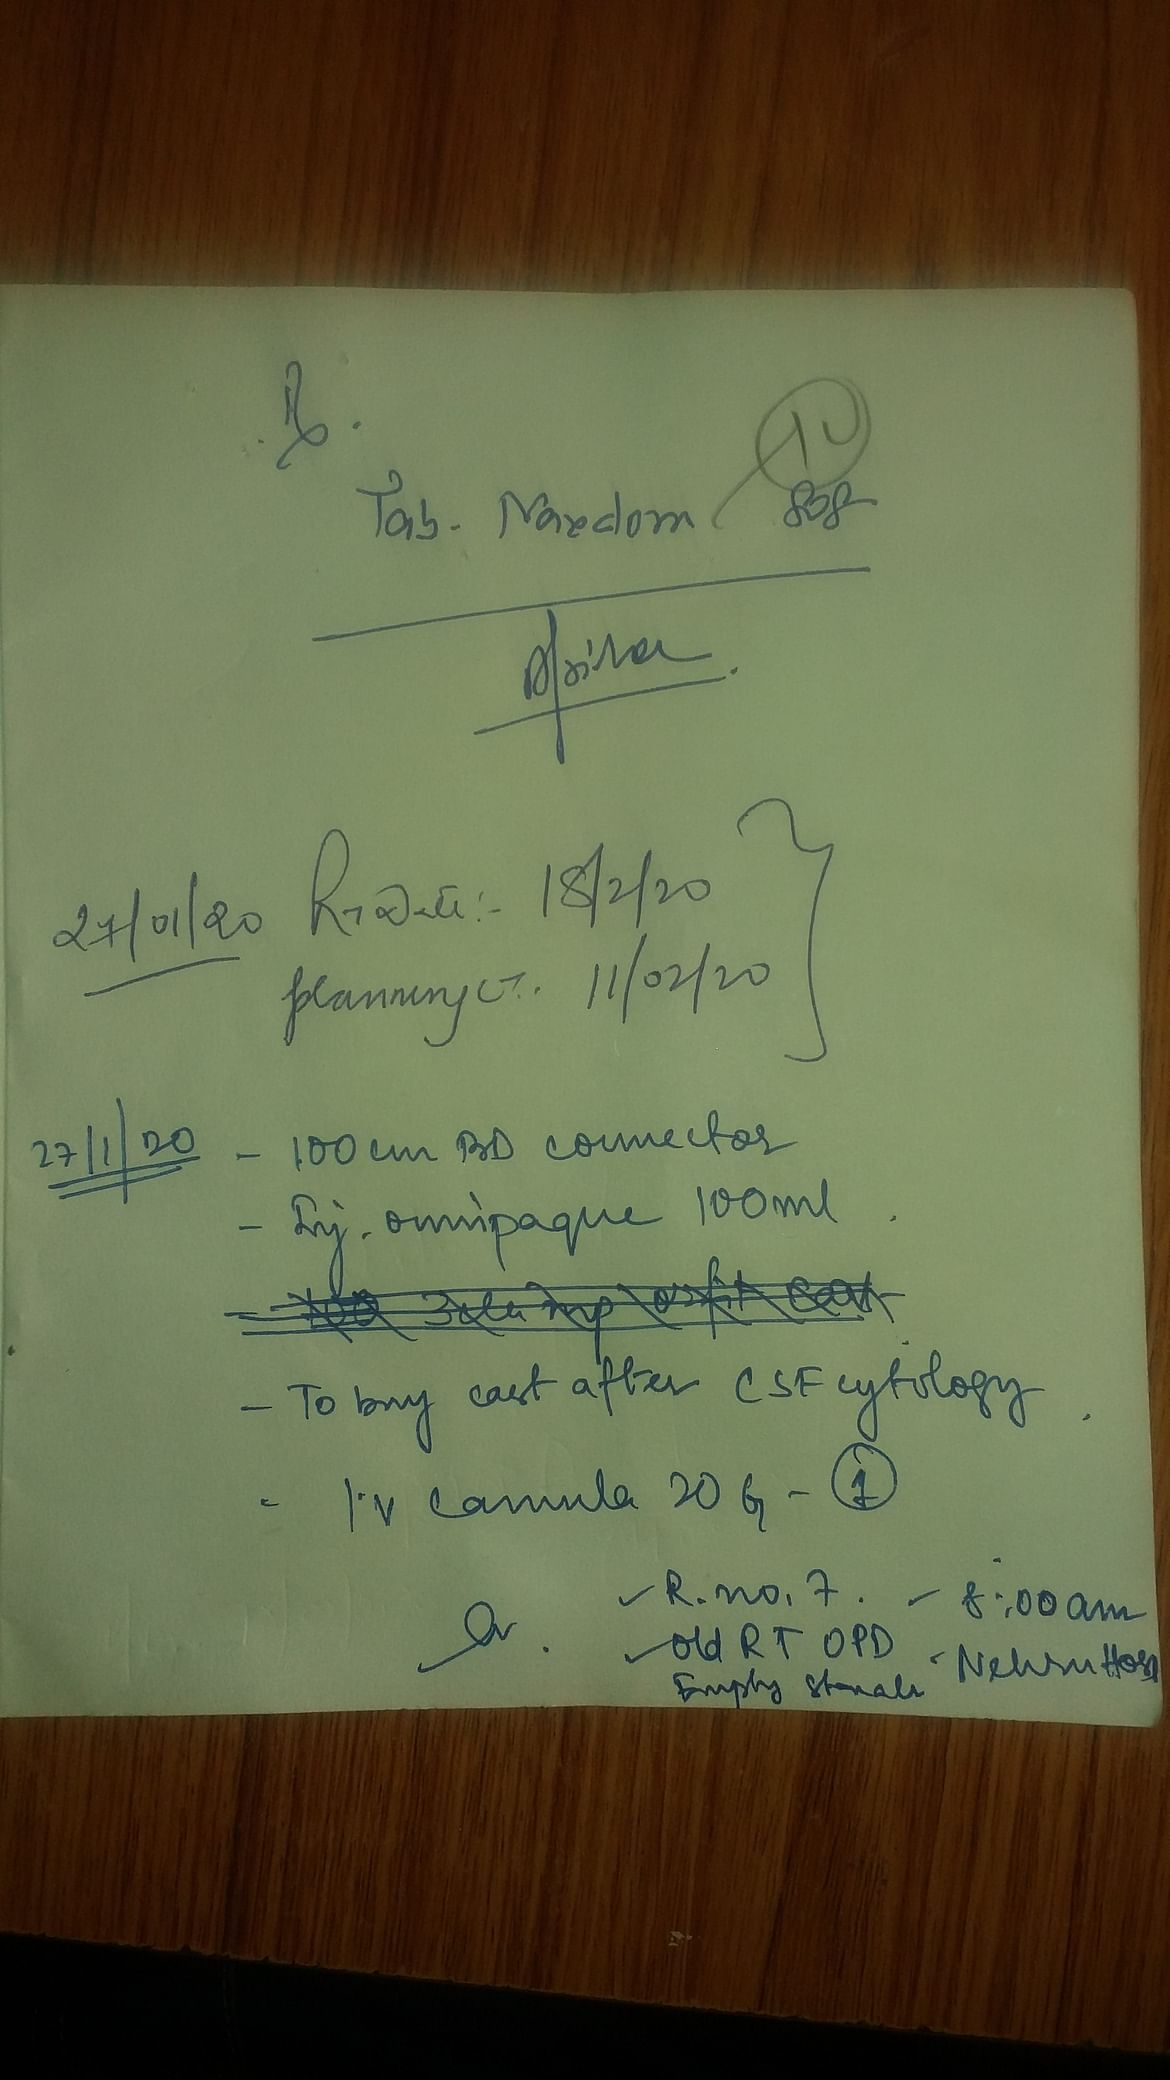 Rx.
10
Tab. Naxdom SOS
27/01/20 Rt Date:- 18/2/20
planning CT:. 11/02/20
27/1/20 - 100 cm BD connector
- Inj. omnipaque 100ml.
- To buy cast after CSF cytology.
- I.V cannula 20 G - 1
R.no. 7. - 8:00 am
Old RT OPD - Nehru Hosp
Empty